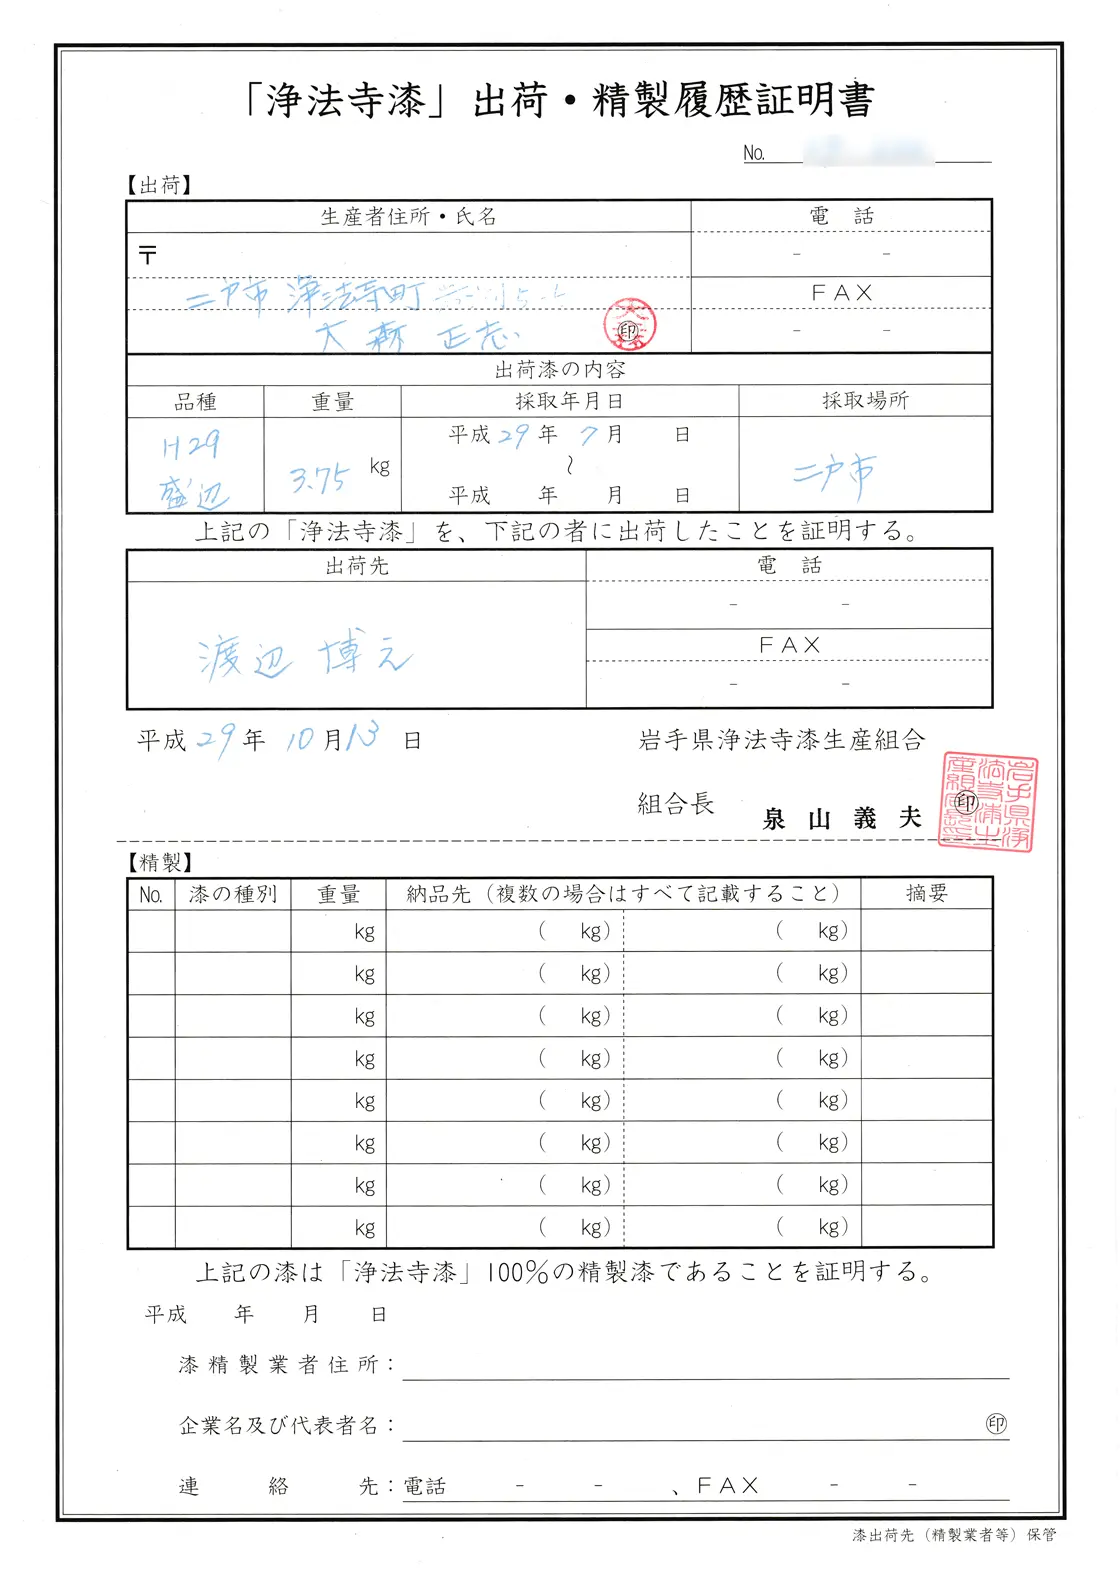 「浄法寺漆」出荷・精製履歴証明書
No.
【出荷】
生産者住所・氏名 電 話
〒 - -
二戸市 浄法寺町 FAX
大森 正志 ㊞ - -
出荷漆の内容
品種 重量 採取年月日 採取場所
H29 盛辺 3.75 kg 平成29年 7月 日 ~ 平成 年 月 日 二戸市
上記の「浄法寺漆」を、下記の者に出荷したことを証明する。
出荷先 電 話
- -
渡辺 博之 FAX
- -
平成29年 10月13日 岩手県浄法寺漆生産組合
組合長 泉山義夫 ㊞
【精製】
No. 漆の種別 重量 納品先(複数の場合はすべて記載すること) 摘要
kg ( kg) ( kg)
kg ( kg) ( kg)
kg ( kg) ( kg)
kg ( kg) ( kg)
kg ( kg) ( kg)
kg ( kg) ( kg)
kg ( kg) ( kg)
kg ( kg) ( kg)
上記の漆は「浄法寺漆」100%の精製漆であることを証明する。
平成 年 月 日
漆精製業者住所:
企業名及び代表者名: ㊞
連絡先:電話 - - 、FAX - -
漆出荷先(精製業者等)保管